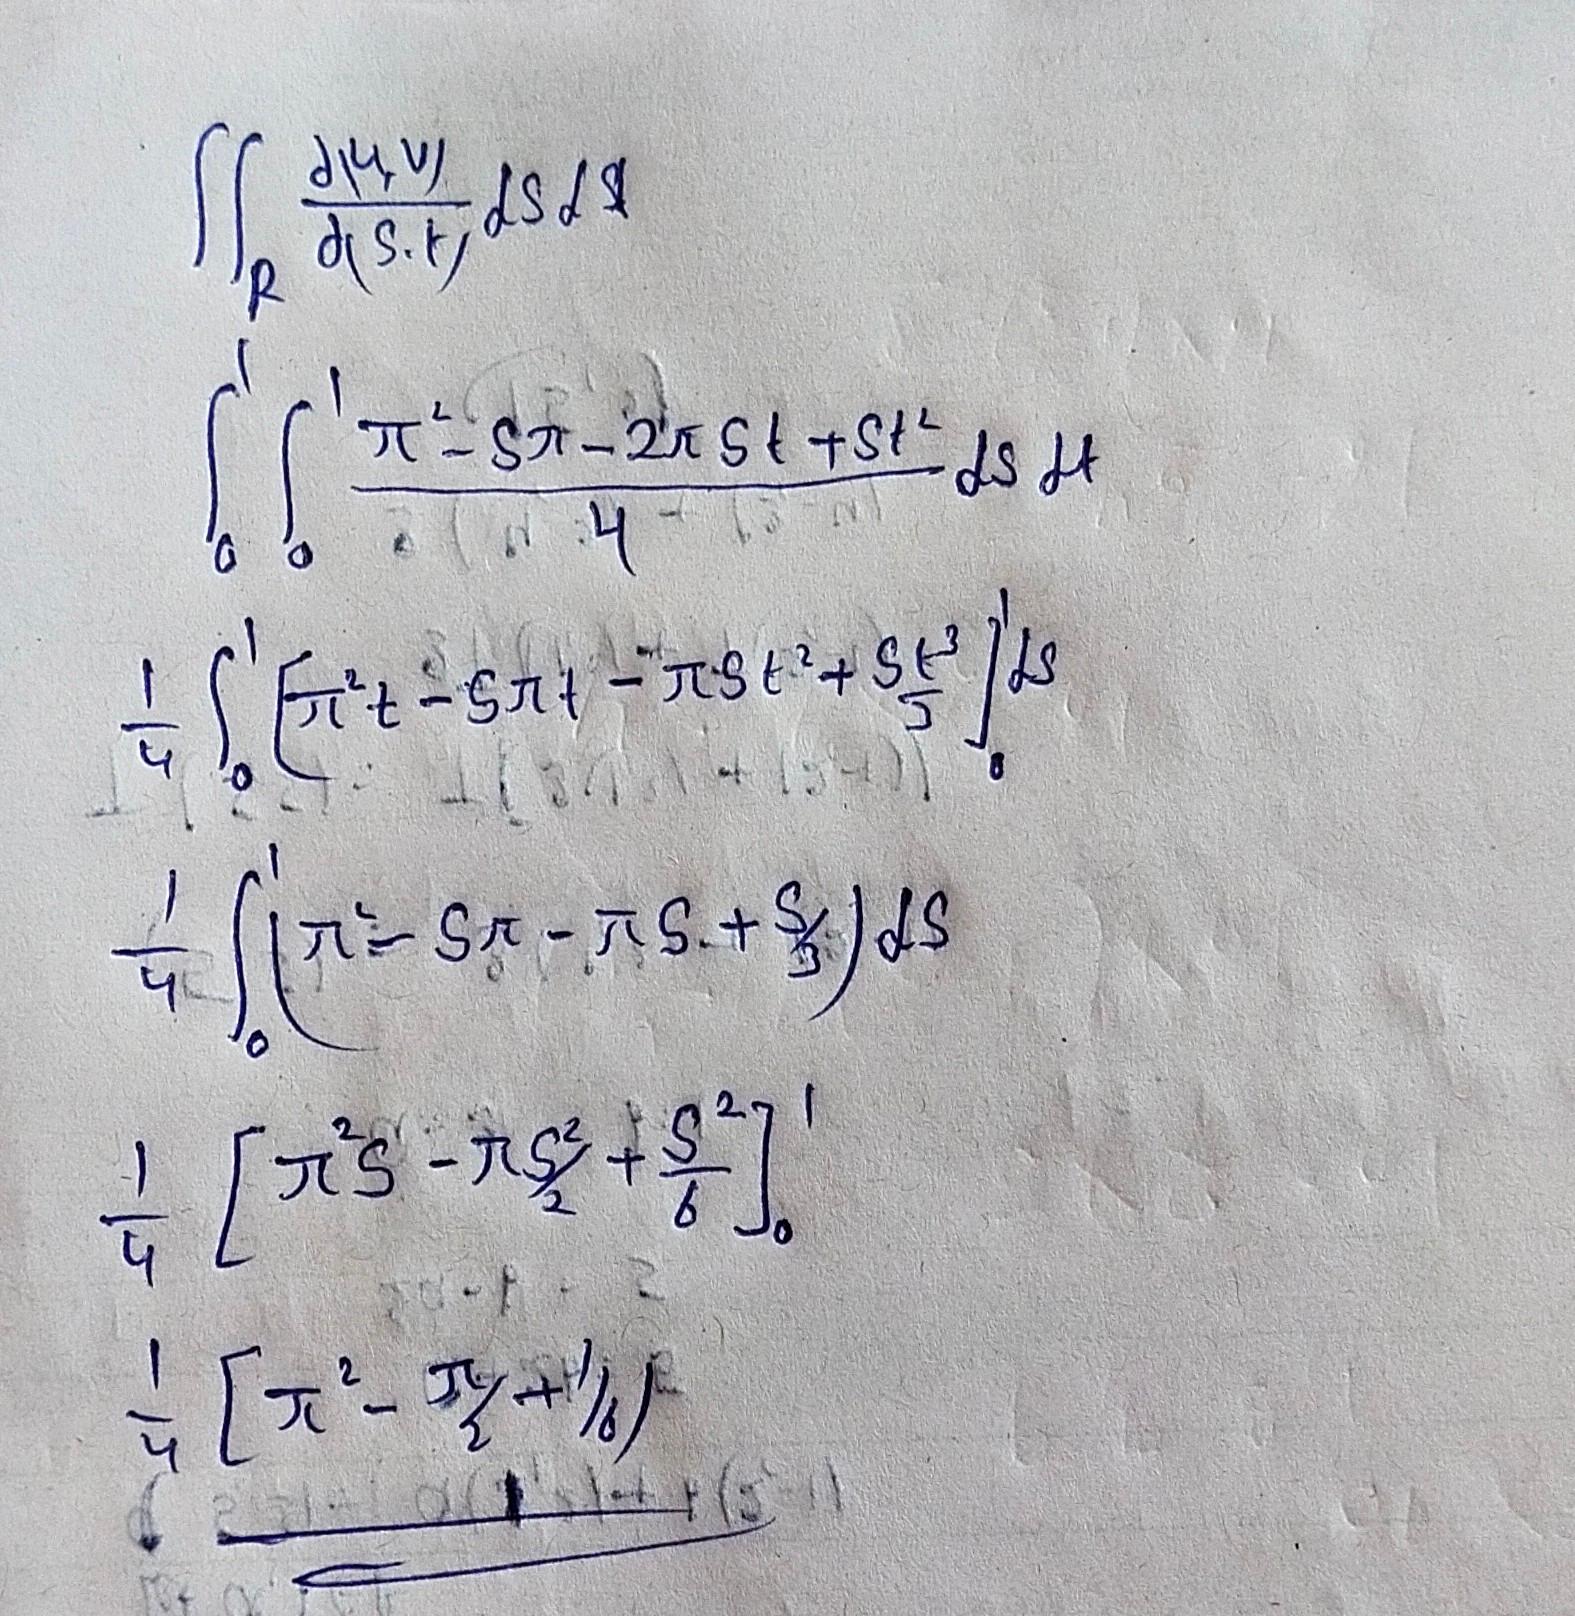 ∬_R ∂(u,v)/∂(s.t) ds dt
∫₀¹ ∫₀¹ (π² - sπ - 2πst + st²)/4 ds dt
1/4 ∫₀¹ [π²t - sπt - πst² + st³/3]₀¹ ds
1/4 ∫₀¹ (π² - sπ - πs + s/3) ds
1/4 [π²s - πs²/2 + s²/6]₀¹
1/4 [π² - π/2 + 1/6)